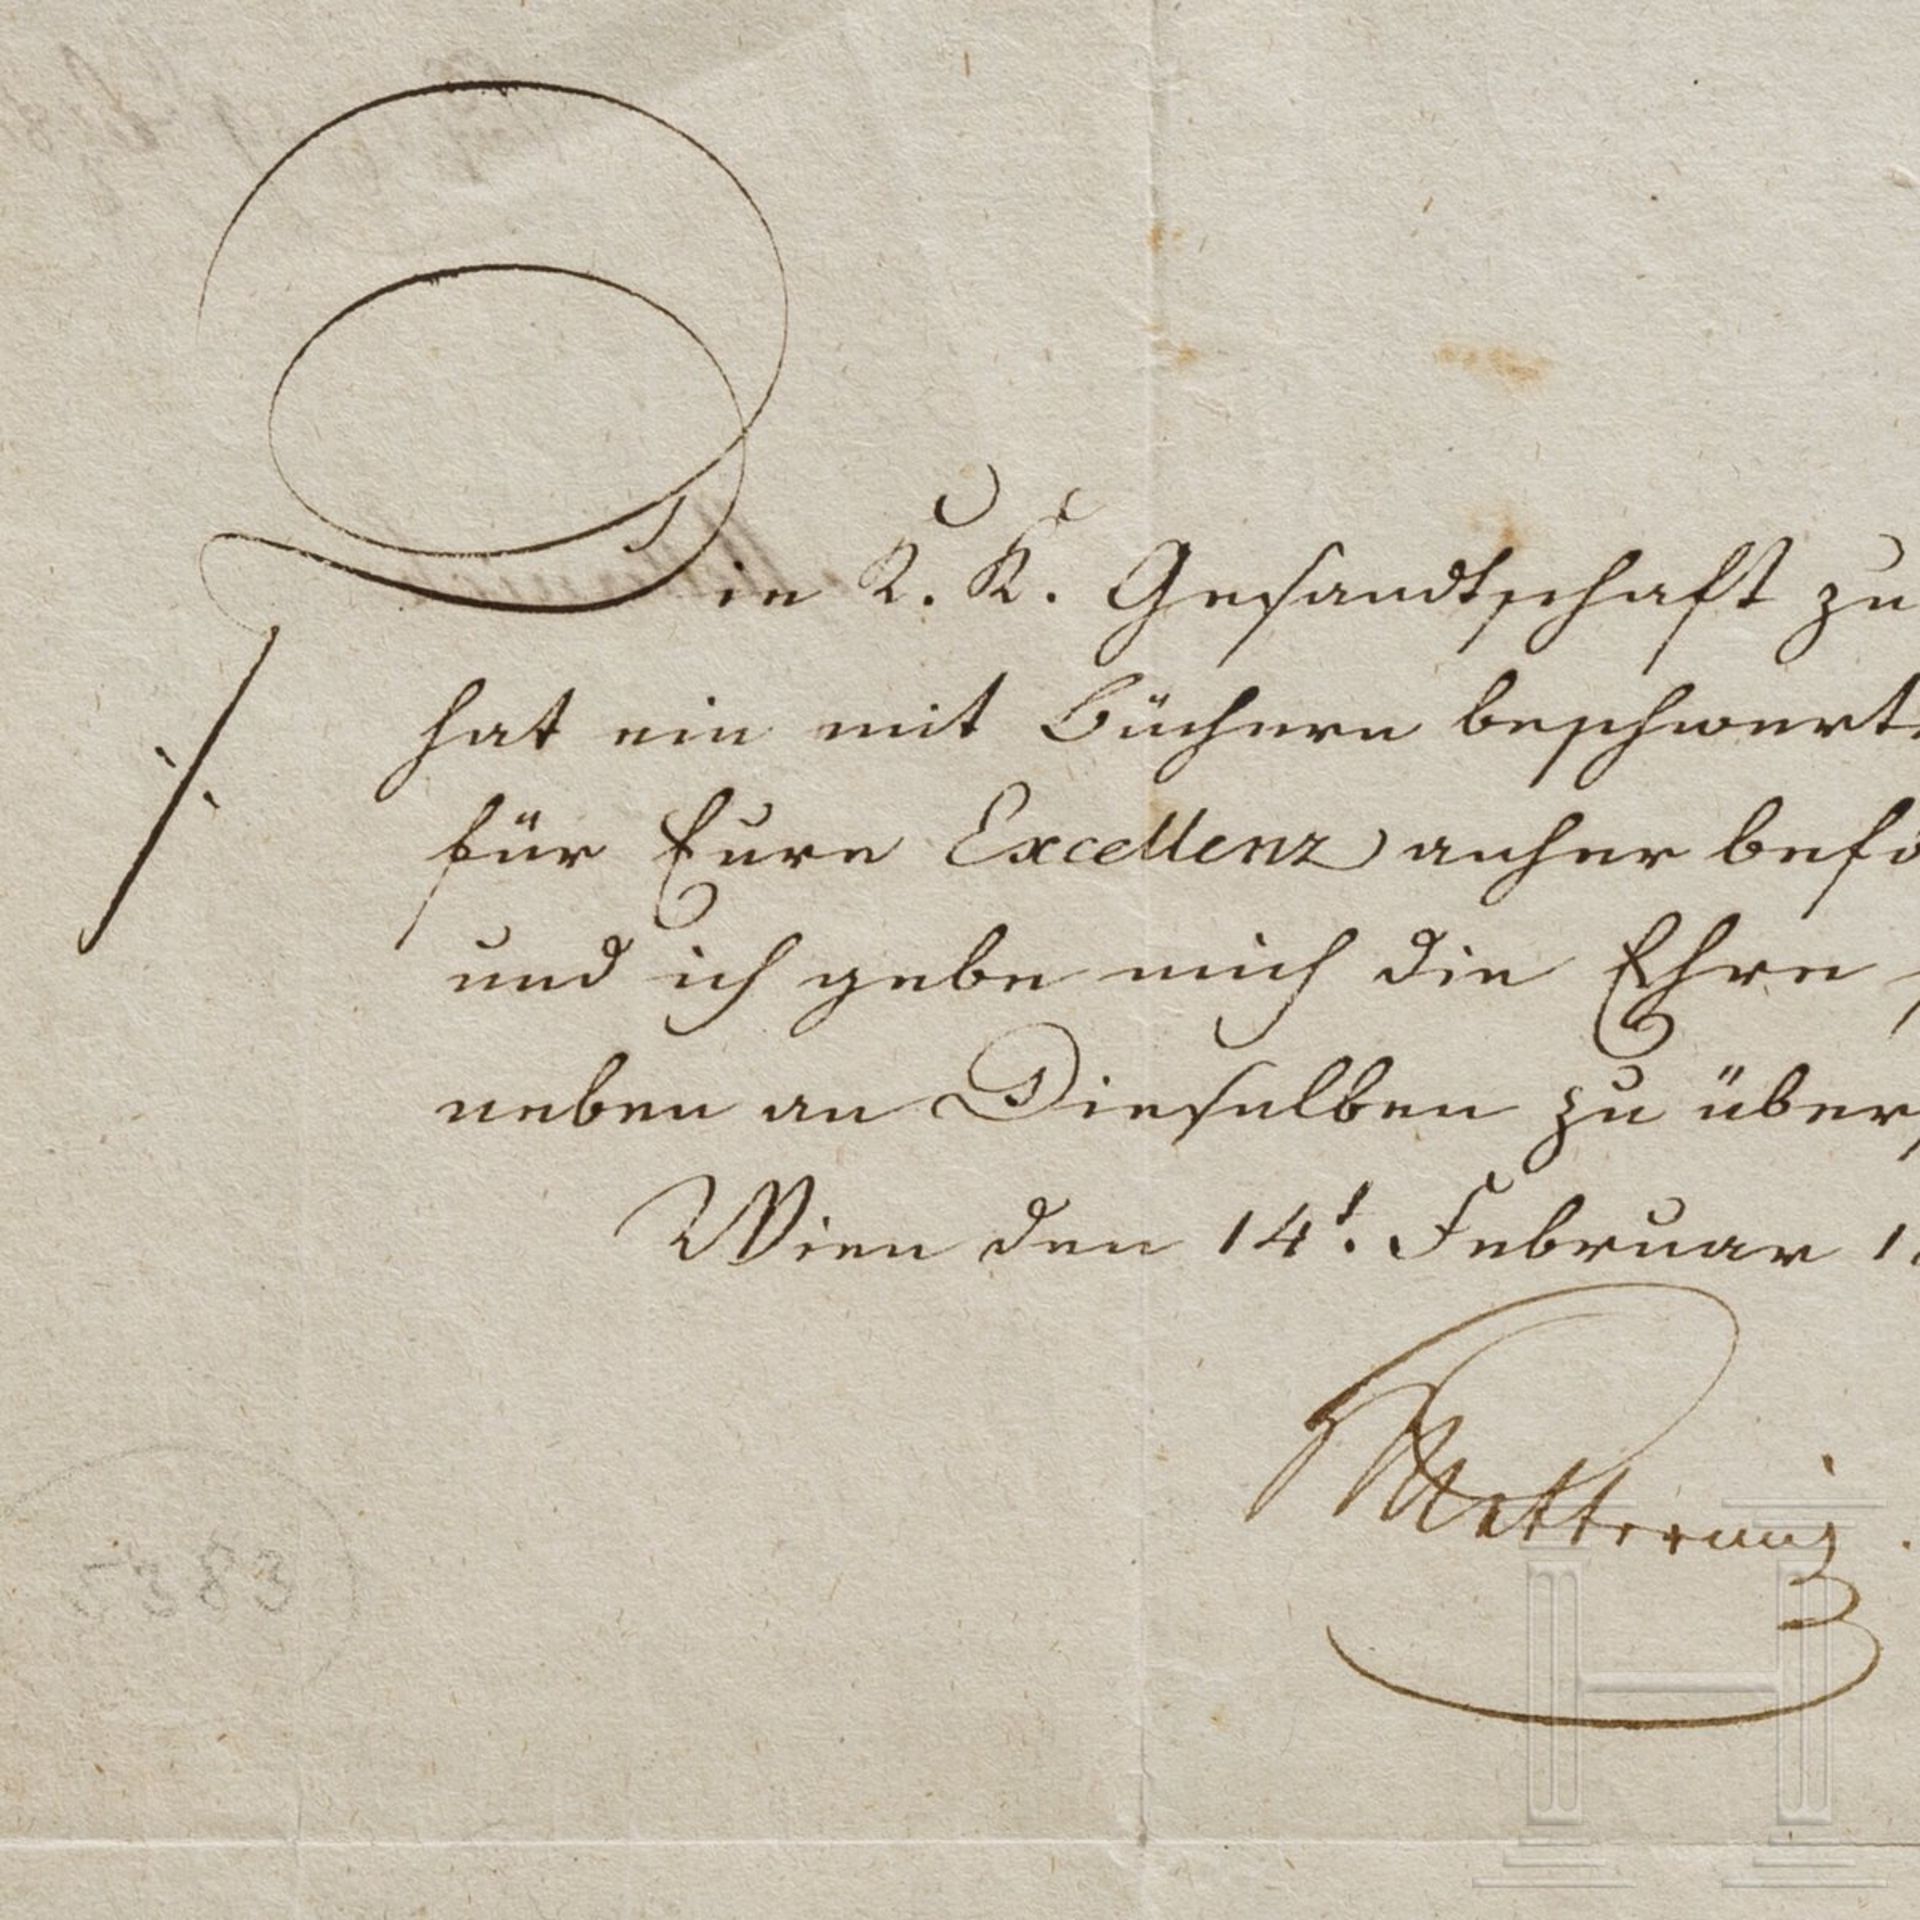 Die K. K. Gesandtschaft zu
hat ein mit Büchern beschwert
für Eure Excellenz anher befö
und ich gebe mir die Ehre
neben an Dieselben zu übers
Wien den 14t. Februar 1
Metternich.
5383